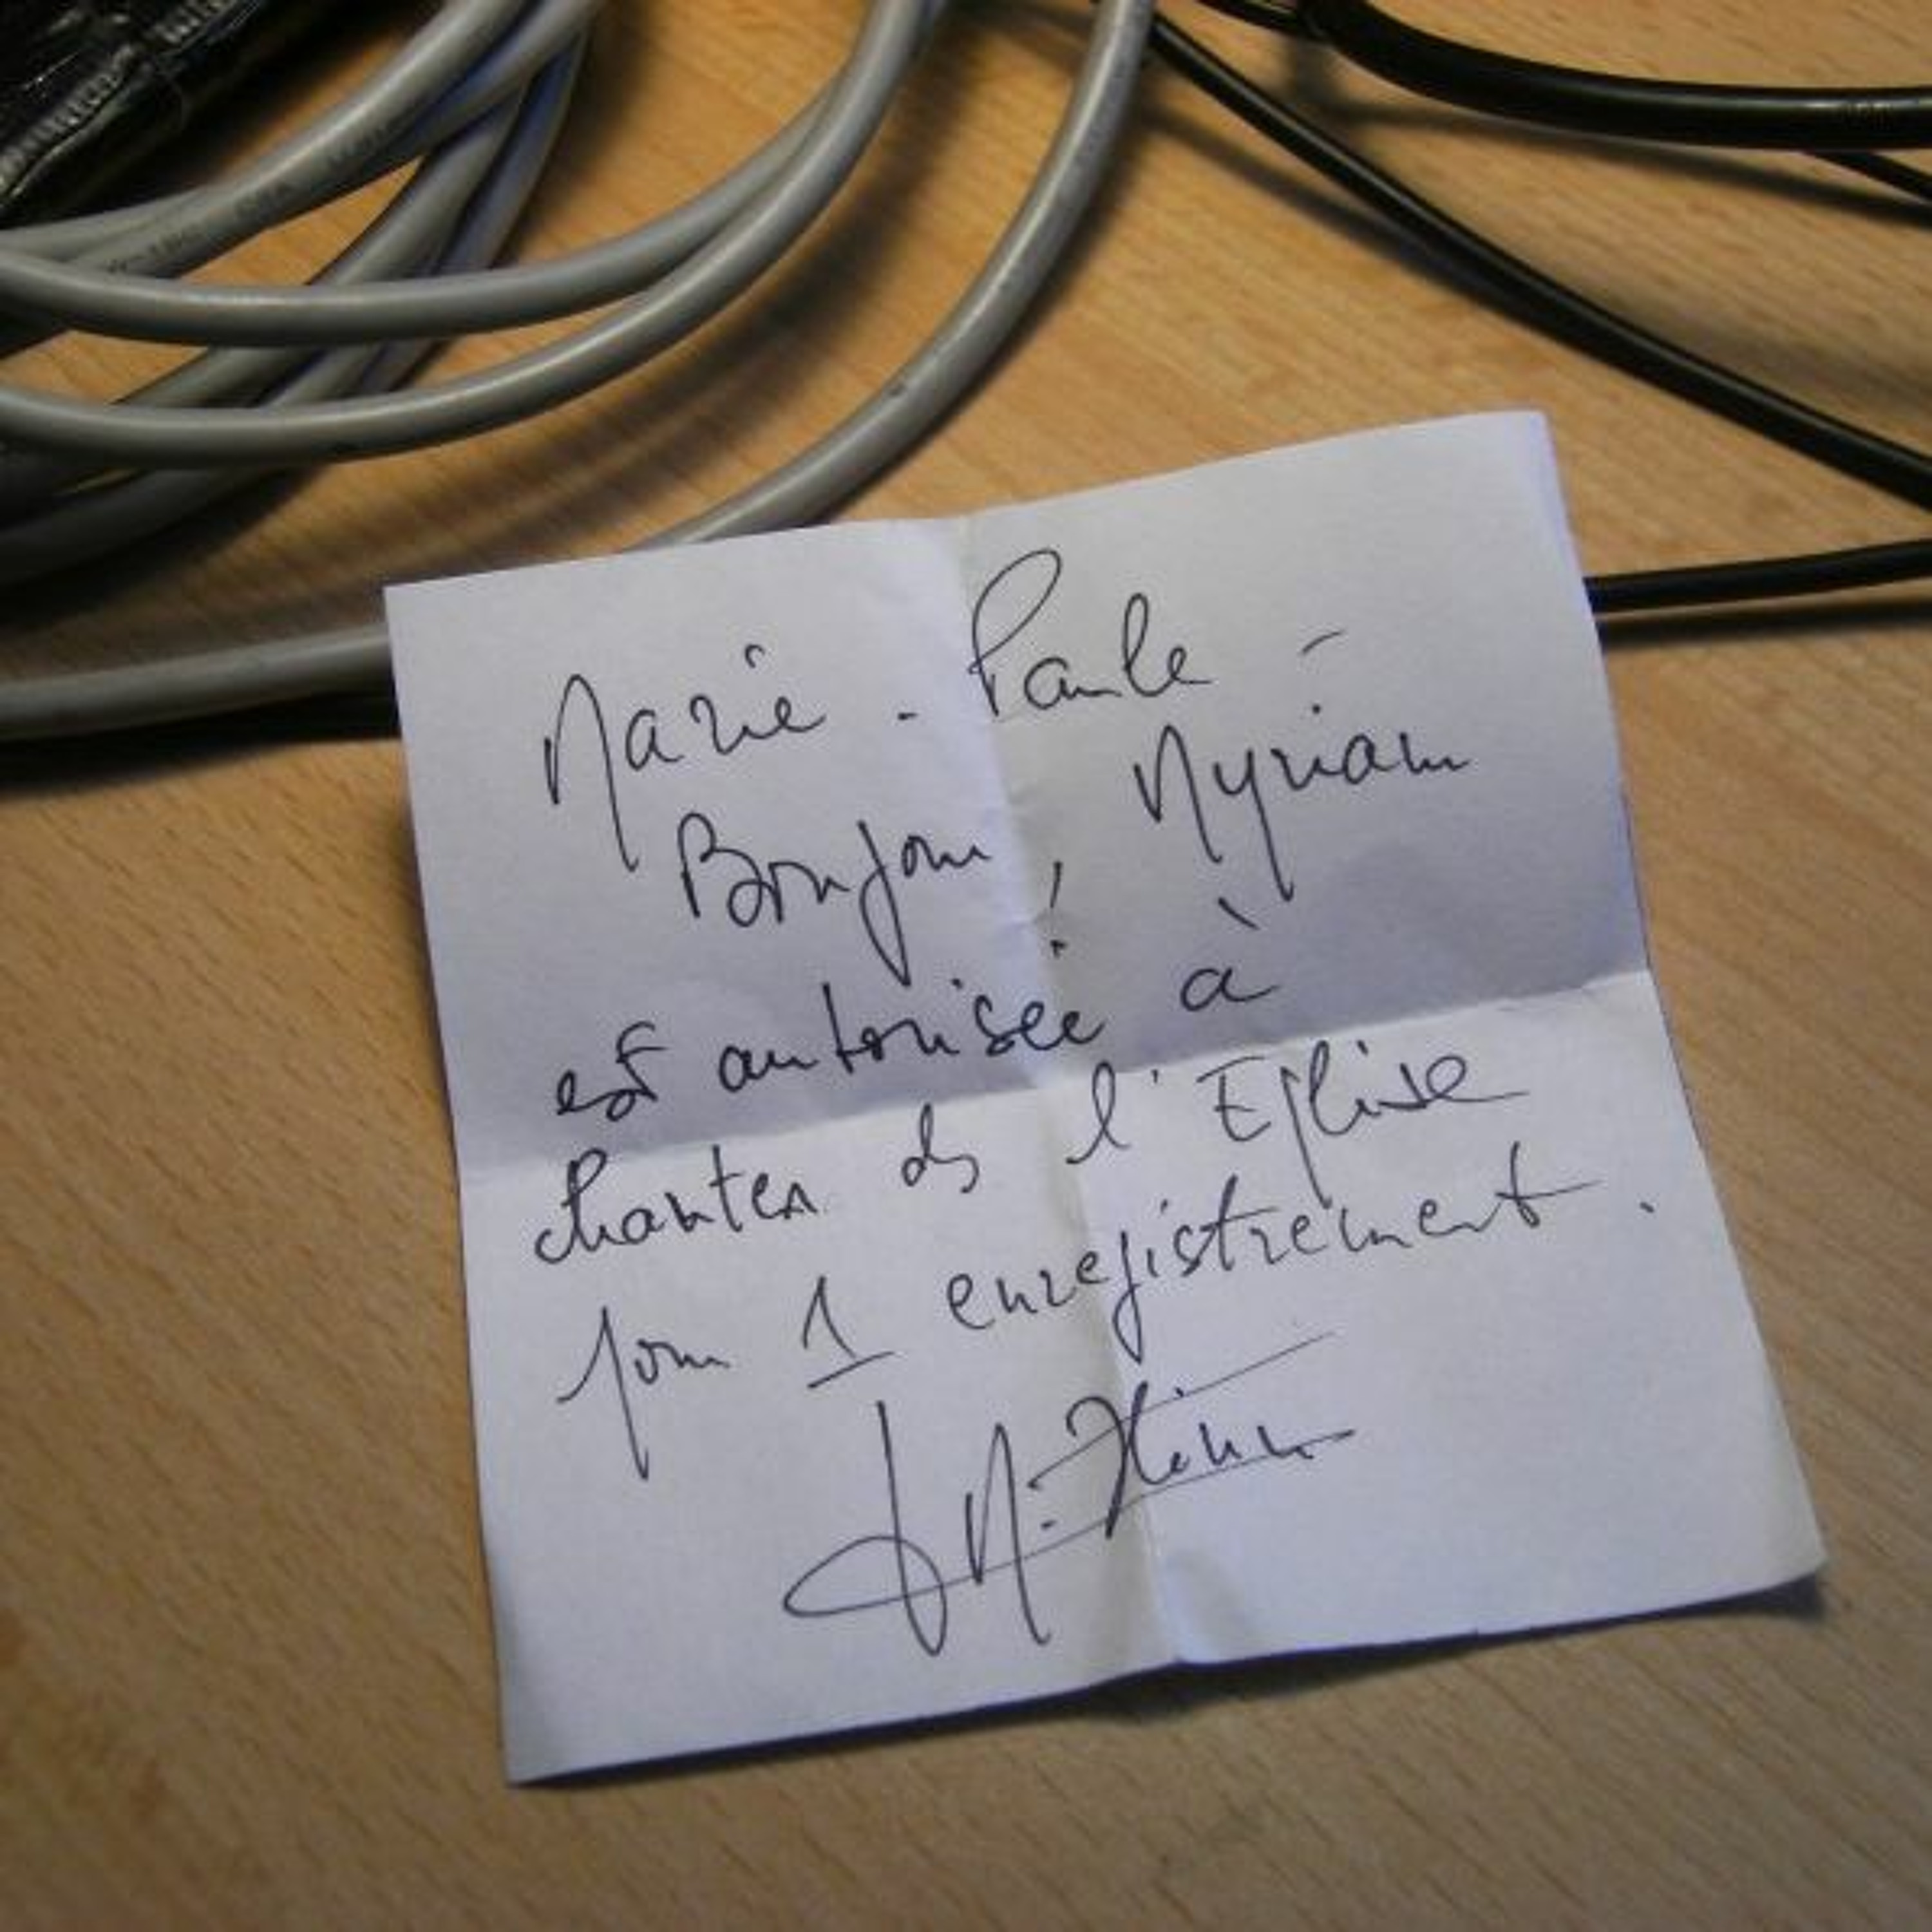 Marie-Paule -
Bonjour ! Myriam
est autorisée à
chanter ds l'Eglise
pour 1 enregistrement.